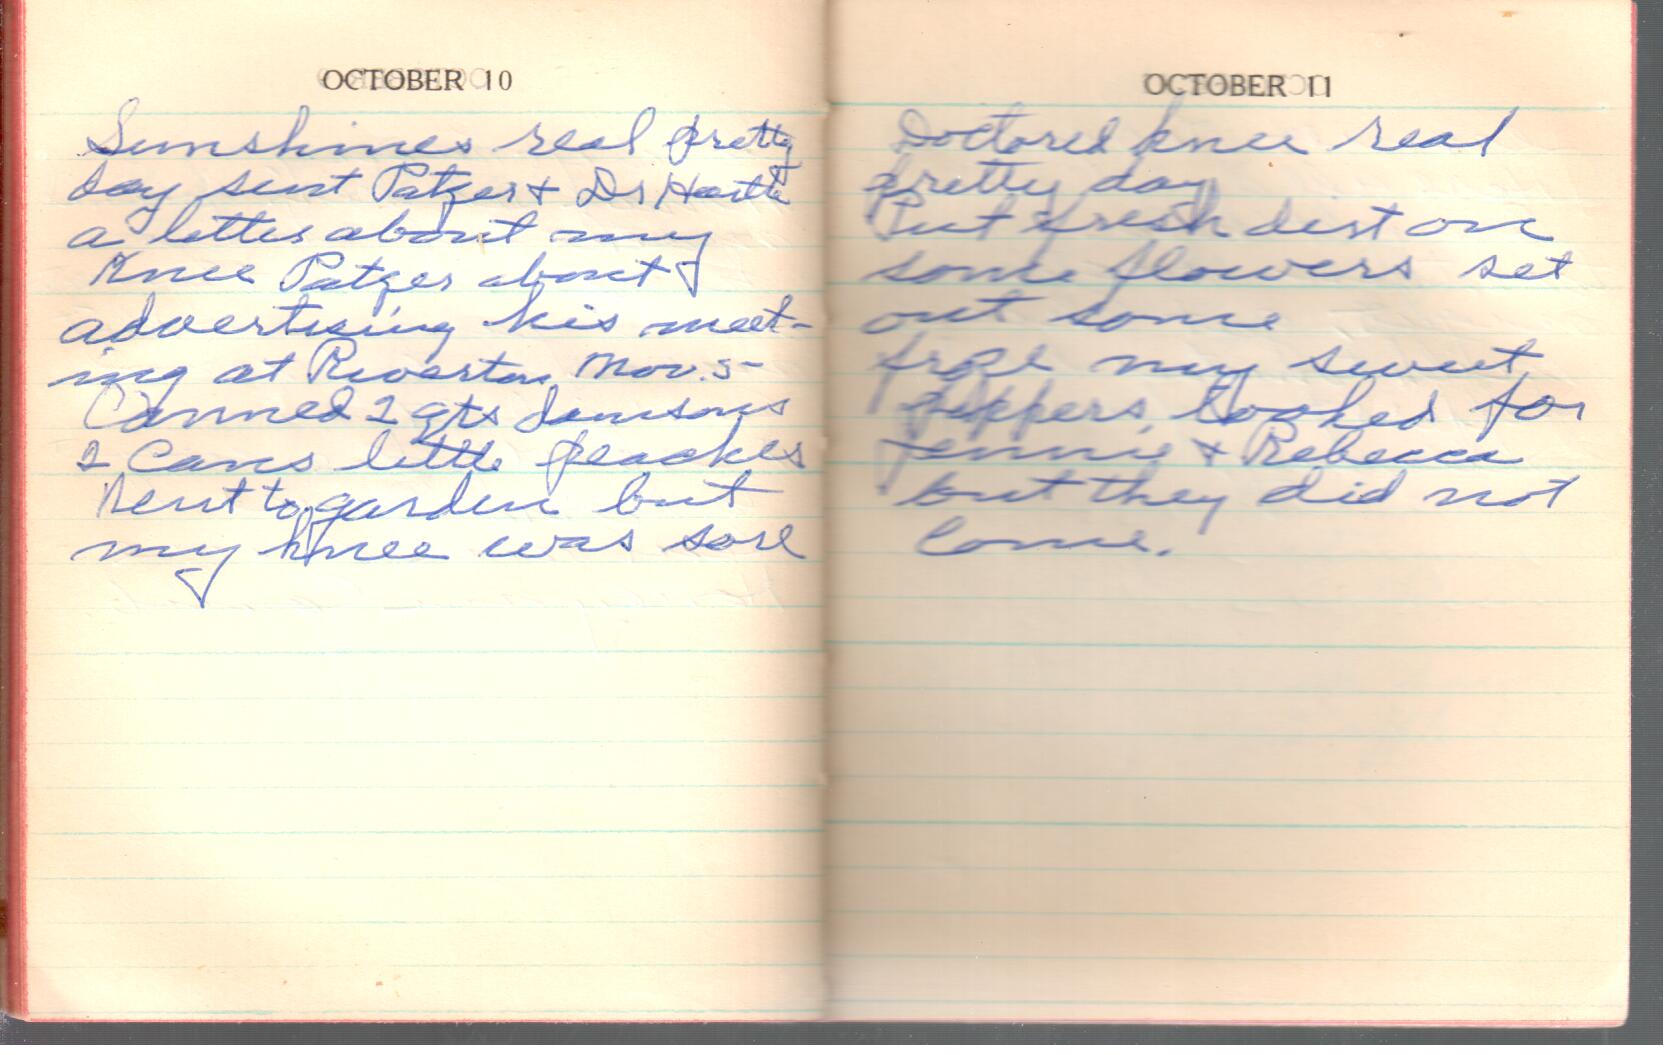 OCTOBER 10
Sunshines real pretty
day sent Patzer & Dr
a letter about my
Knee Patzer about
advertising his meet-
ing at Riverton Nov. 5-
Canned 2 qts damsons
2 Cans little peaches
Went to garden but
my knee was sore
OCTOBER 11
Doctored knee real
pretty day
Put fresh dirt on
some flowers set
out some
froze my sweet
peppers, looked for
Jennie & Rebecca
but they did not
Come.